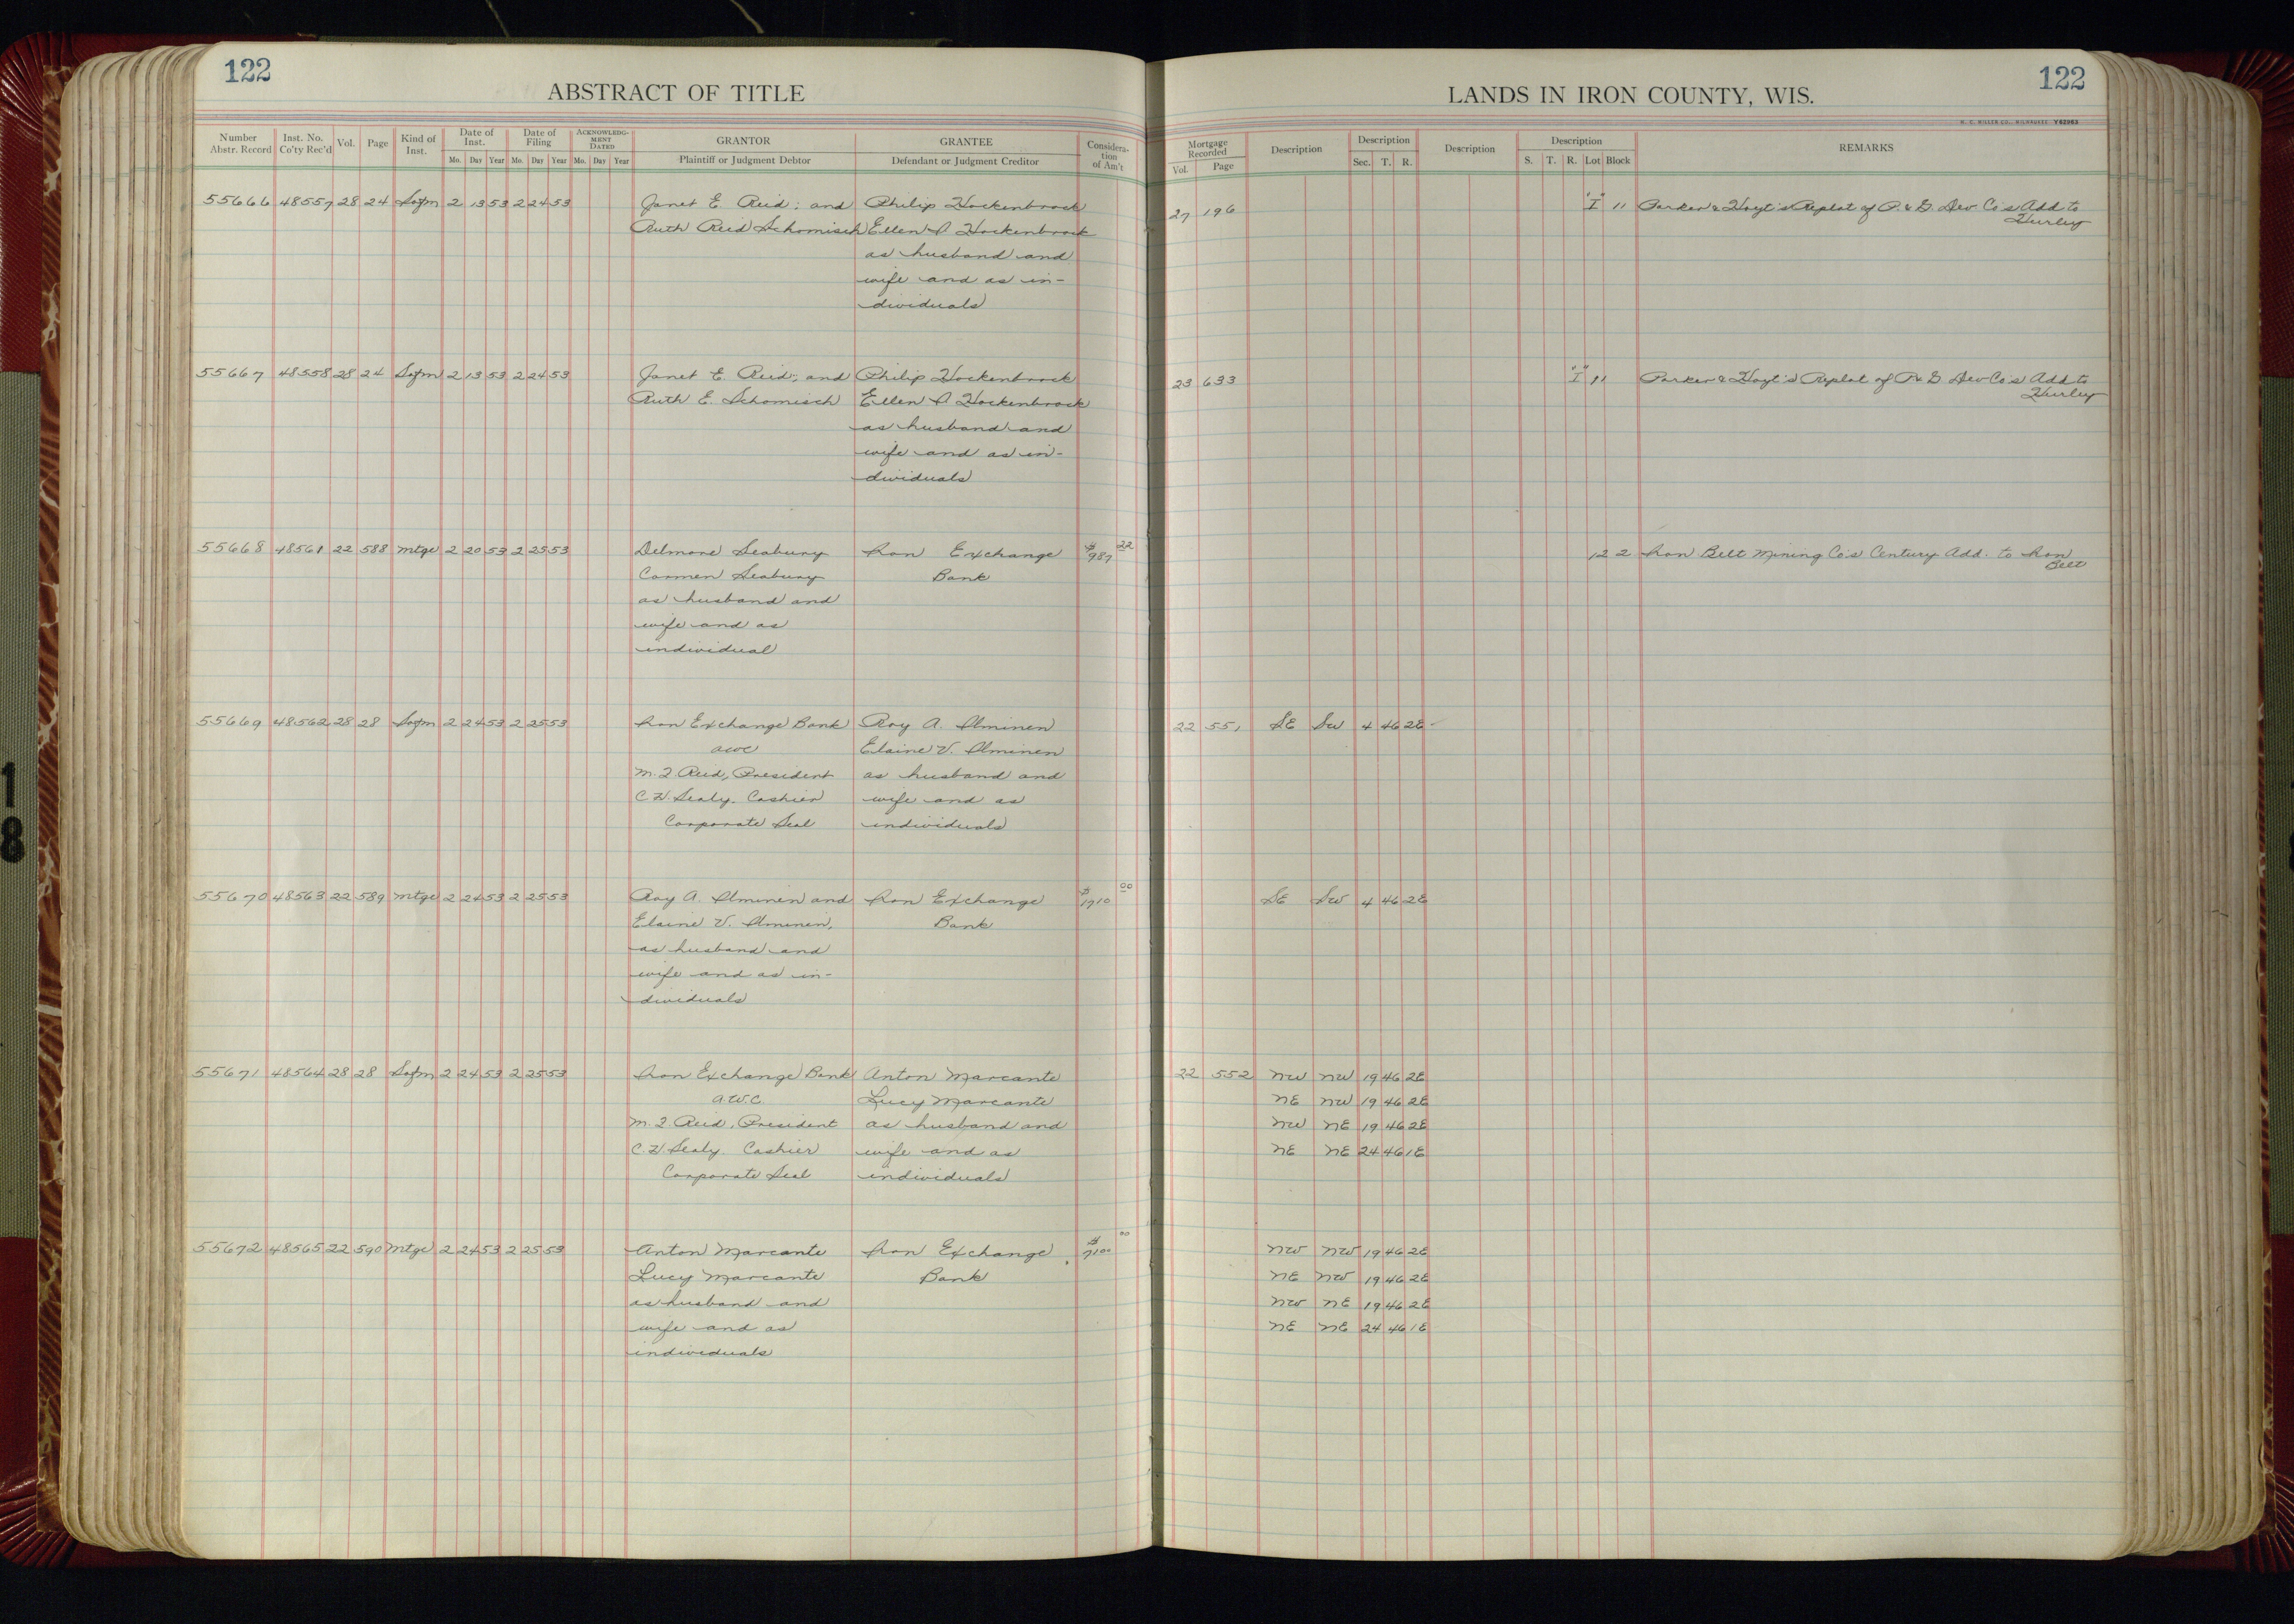 122
ABSTRACT OF TITLE
Number Abstr. Record | Inst. No. Co'ty Rec'd | Vol. | Page | Kind of Inst. | Date of Inst. Mo. Day Year | Date of Filing Mo. Day Year | ACKNOWLEDGMENT DATED Mo. Day Year | GRANTOR Plaintiff or Judgment Debtor | GRANTEE Defendant or Judgment Creditor | Consideration of Am't
55666 48557 28 24 Sofm 2 13 53 2 24 53 Janet E. Reid; and Philip Hockenbrock
Ruth Reid Schomisch Ellen A. Hockenbrock
as husband and
wife and as in-
dividuals
55667 48558 28 24 Sofm 2 13 53 2 24 53 Janet E. Reid; and Philip Hockenbrock
Ruth E. Schomisch Ellen A. Hockenbrock
as husband and
wife and as in-
dividuals
55668 48561 22 588 Mtge 2 20 53 2 25 53 Delmore Seabury Iron Exchange $987 22
Carmen Seabury Bank
as husband and
wife and as
individual
55669 48562 28 28 Sofm 2 24 53 2 25 53 Iron Exchange Bank Roy A. Ilminen
awc Elaine V. Ilminen
M. J. Reid, President as husband and
C. H. Sealy. Cashier wife and as
Corporate Seal individuals
55670 48563 22 589 Mtge 2 24 53 2 25 53 Roy A. Ilminen and Iron Exchange $1710 00
Elaine V. Ilminen, Bank
as husband and
wife and as in-
dividuals
55671 48564 28 28 Sofm 2 24 53 2 25 53 Iron Exchange Bank Anton Marcante
a.w.c. Lucy Marcante
M. J. Reid, President as husband and
C. H. Sealy. Cashier wife and as
Corporate Seal individuals
55672 48565 22 590 Mtge 2 24 53 2 25 53 Anton Marcante Iron Exchange $7100 00
Lucy Marcante Bank
as husband and
wife and as
individuals
122
LANDS IN IRON COUNTY, WIS.
H. C. MILLER CO., MILWAUKEE Y62963
Mortgage Recorded Vol. Page | Description | Description Sec. T. R. | Description | Description S. T. R. Lot Block | REMARKS
27 196 "I" 11 Parker & Hoyt's Replat of P. & G. Dev. Co's Add to
Hurley
23 633 "I" 11 Parker & Hoyt's Replat of P & G. Dev Co's Add to
Hurley
12 2 Iron Belt Mining Co's Century Add. to Iron
Belt
22 551 SE SW 4 46 2E
SE SW 4 46 2E
22 552 NW NW 19 46 2E
NE NW 19 46 2E
NW NE 19 46 2E
NE NE 24 46 1E
NW NW 19 46 2E
NE NW 19 46 2E
NW NE 19 46 2E
NE NE 24 46 1E
18